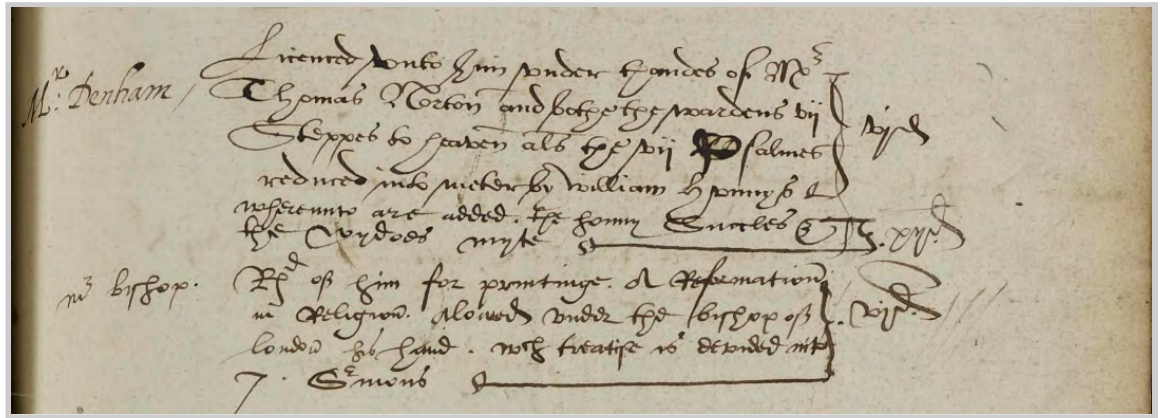 Mr: Denham
Licenced vnto him vnder thandes of Mr
Thomas Norton and bothe the wardens vii
Steppes to heaven als the vii Psalmes
reduced into meter by william Hunnys
wherevnto are added. the honny Succles &
the wydoes myte
vjd
xijd.
mr bishop.
Rd of him for printinge. A Reformation
in Religion. alowed vnder the bishop of
london his hand. wch treatise is devided into
7. Sermons
vjd.